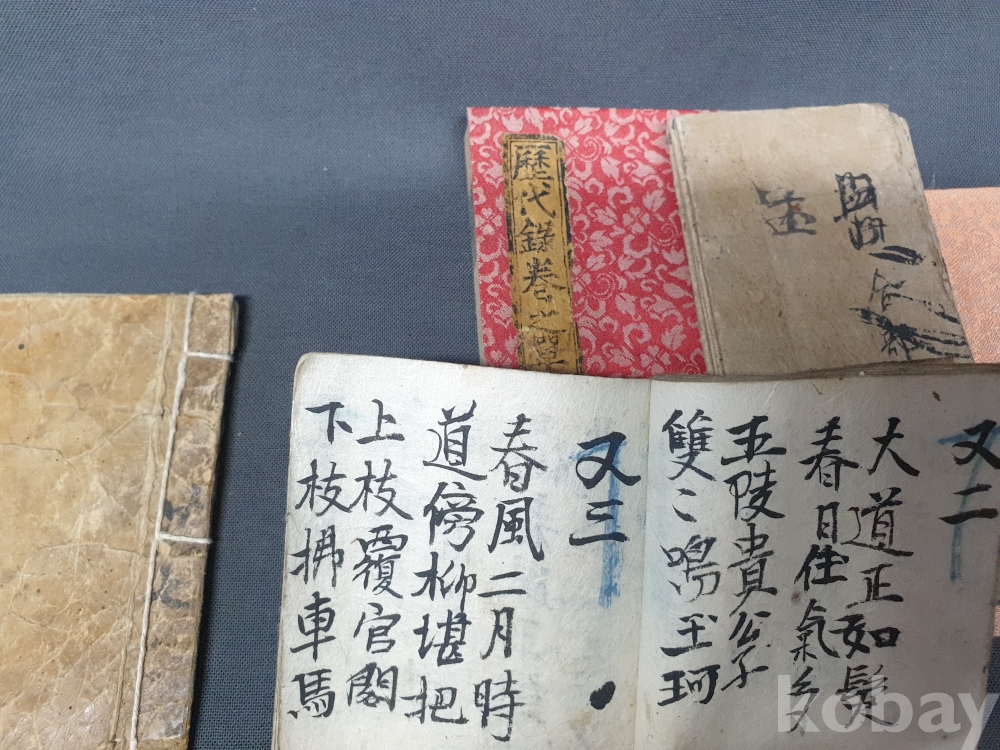 歷代錄卷之單
又二
大道正如髮
春日佳氣多
五陵貴公子
雙〻鳴玉珂
又三
春風二月時
道傍柳堪把
上枝覆官閣
下枝拂車馬
kobay